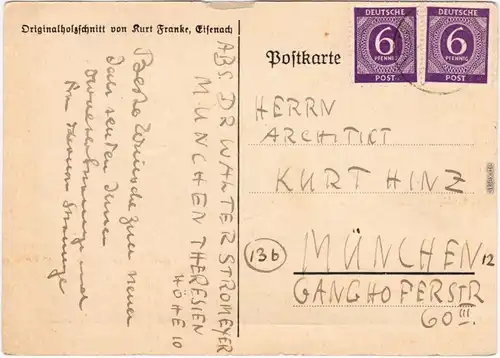 Originalholzschnitt von Kurt Franke, Eisenach
Beste Wünsche zum neuen
Jahr senden Ihnen
und
Ihr
ABS. DR WALTER STROMEYER
MÜNCHEN THERESIEN
HÖHE 10
Postkarte
DEUTSCHE
6
PFENNIG
POST
DEUTSCHE
6
PFENNIG
POST
HERRN
ARCHITIKT
KURT HINZ
13b
MÜNCHEN 12
GANGHOFERSTR
60 III